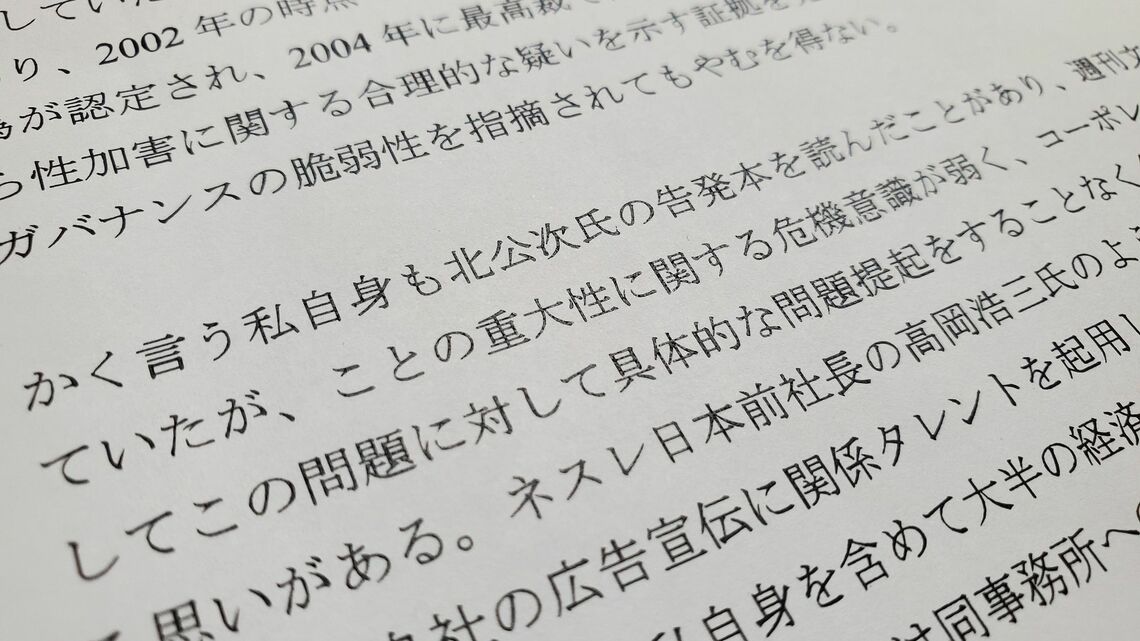 していた
り、2002年の時点
為が認定され、2004年に最高裁で
ら性加害に関する合理的な疑いを示す証拠を
ガバナンスの脆弱性を指摘されてもやむを得ない。
かく言う私自身も北公次氏の告発本を読んだことがあり、週刊文
ていたが、ことの重大性に関する危機意識が弱く、コーポレ
してこの問題に対して具体的な問題提起をすることなく
思いがある。ネスレ日本前社長の高岡浩三氏のよう
社の広告宣伝に関係タレントを起用し
私自身を含めて大半の経済
同事務所への